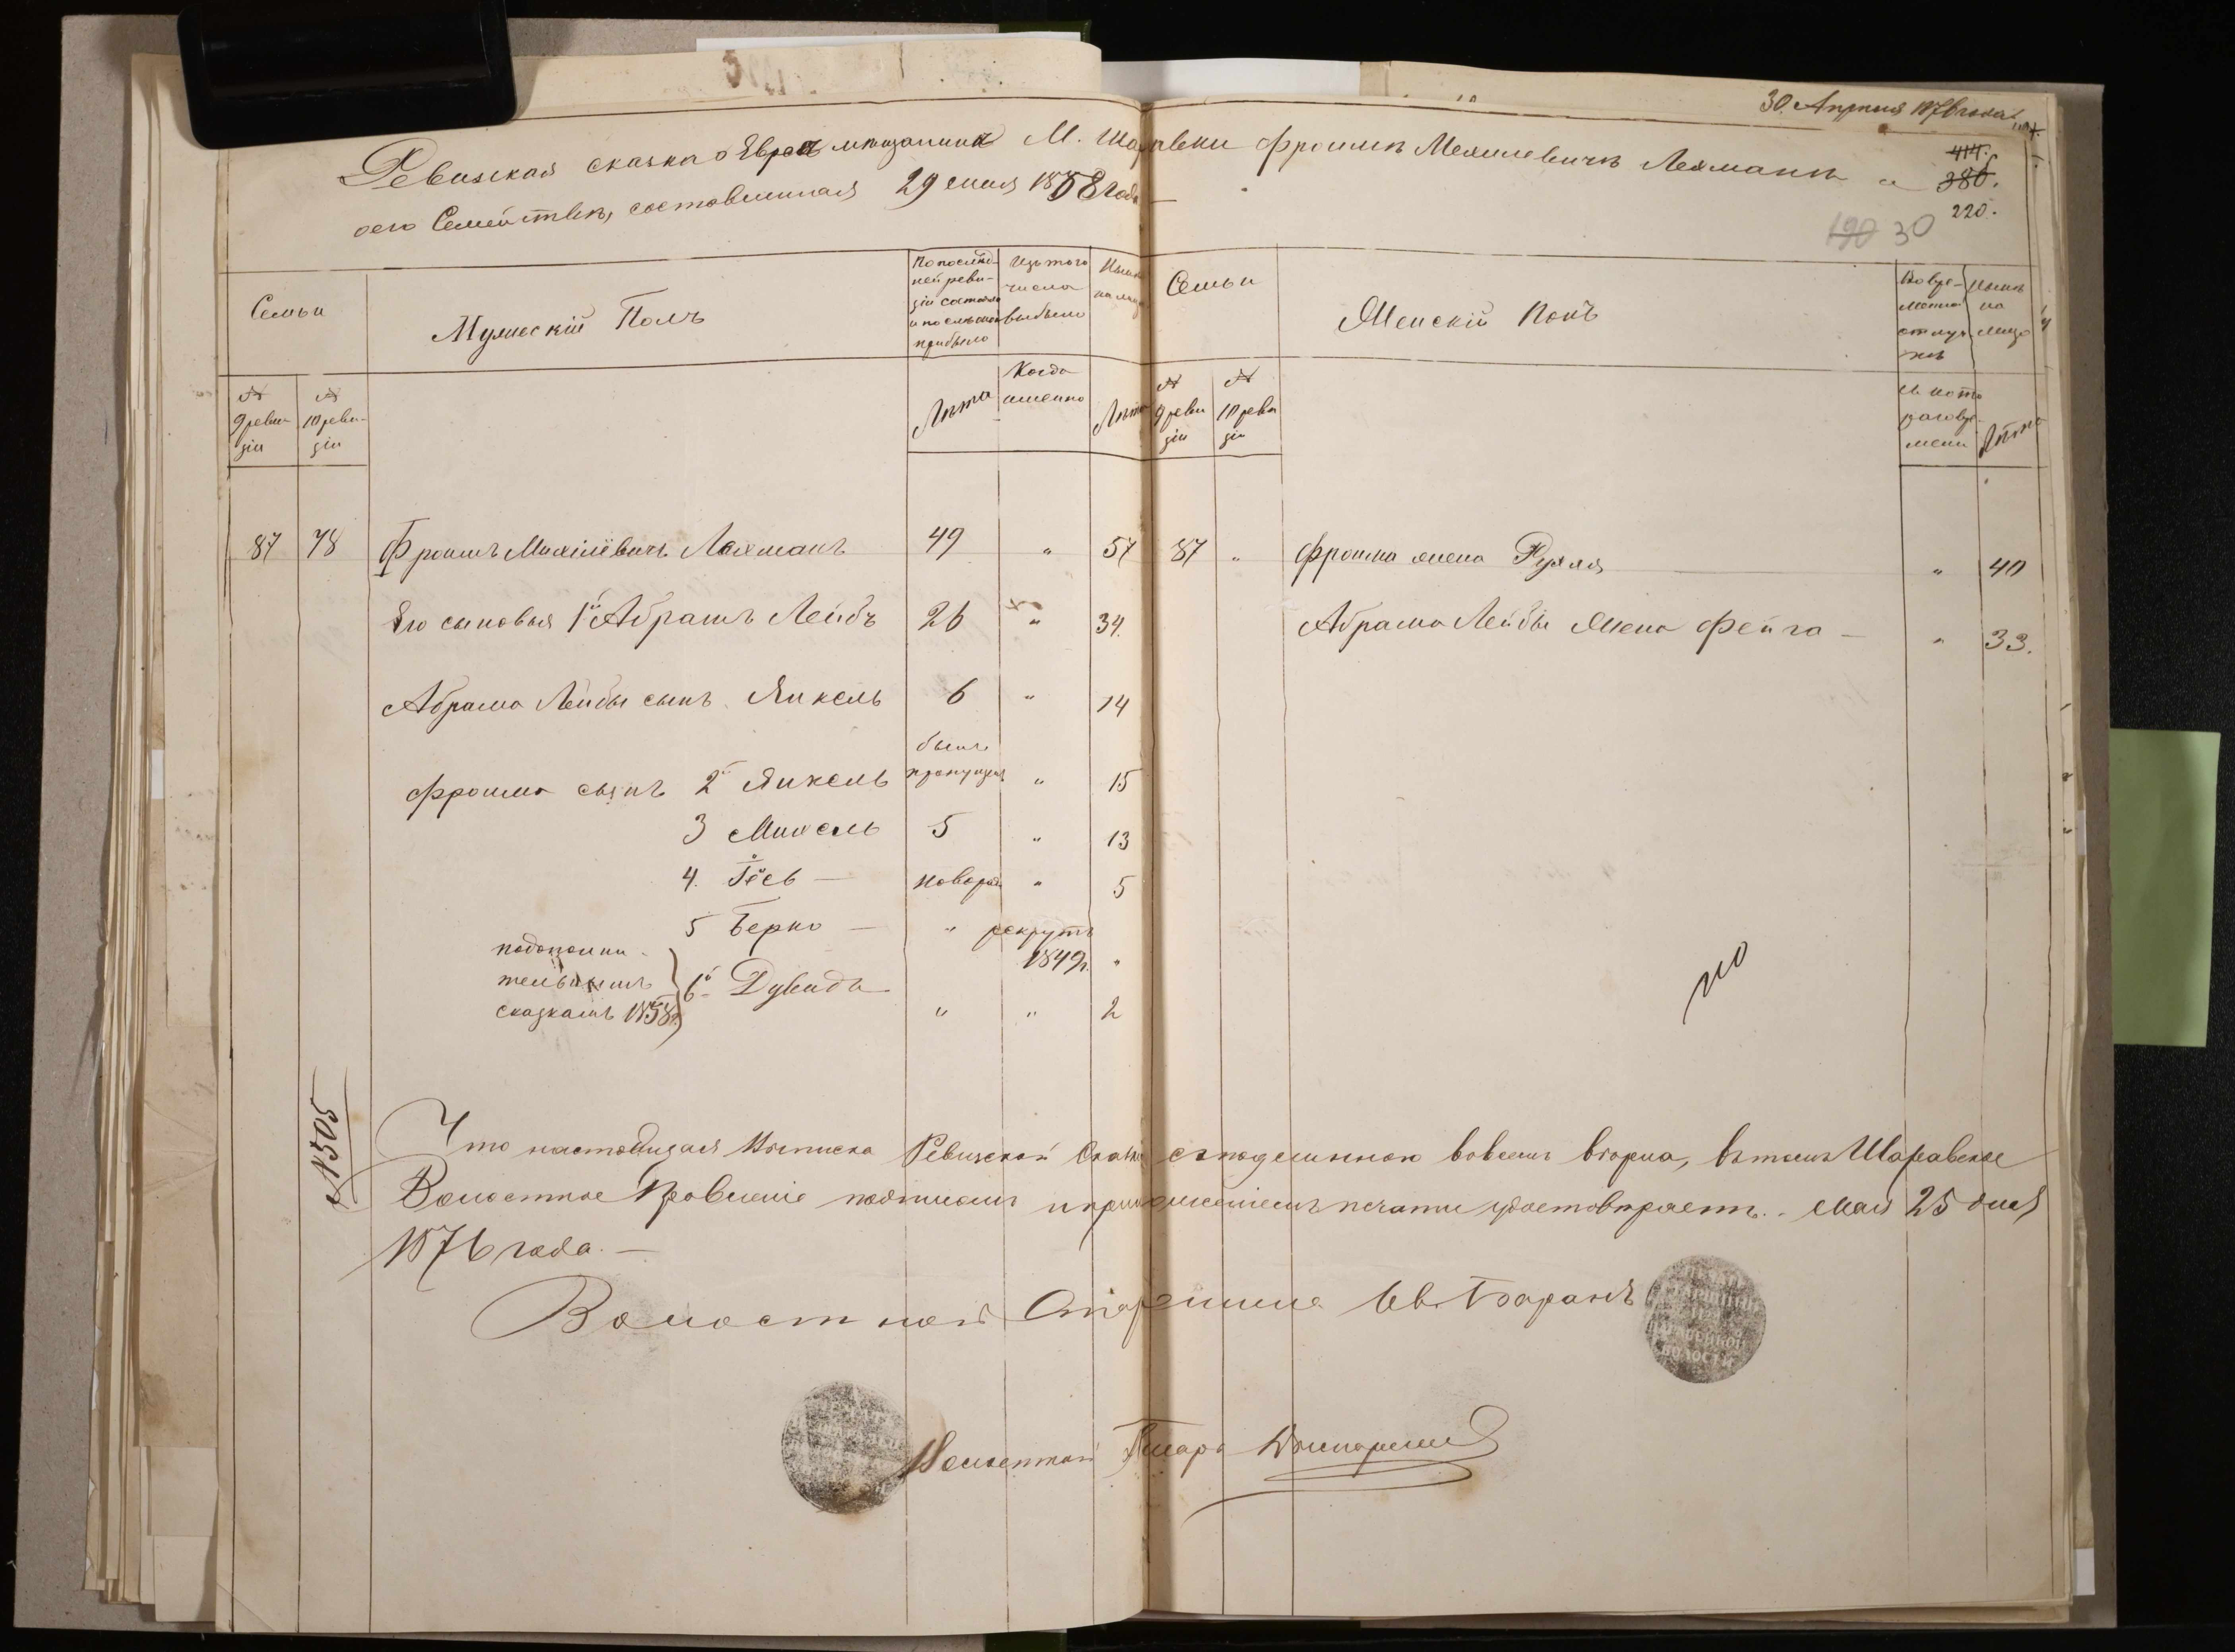 30 Апреля 1876 года
Ревизская сказка о Еврея мещанина М. Шаравки Фроимъ Мехилевичъ Лехманъ и
414.
386.
220.
его Семействѣ, составленная 29 1858 года
190 30
Семьи
Мужескій Полъ
По послѣд-
ней реви-
зіи состояло
и послѣ оной
прибыло
Изъ того
числа
выбыло
Нынѣ
на лицо
Семьи
Женскій Полъ
Во вре-
менной
отлуч-
кѣ
Нынѣ
на
лицо
№
9 реви-
зіи
№
10 реви-
зіи
Лѣта
Когда
именно
Лѣта
№
9 реви
зіи
№
10 реви
зіи
съ кото
раго вре-
мени
Лѣта
87 78 Фроимъ Мехілёвичъ Лехманъ 49 " 57 87 " Фроима жена Рухля " 40
Его сыновья 1й Абрамъ Лейбъ 26 " 34. Абрама Лейбы Жена Фейга — " 33.
Абрама Лейбы сынъ Янкель 6 " 14
Фроима сынъ 2й Янкель былъ пропущенъ " 15
3 Михель 5 " 13
4. Іось — новорож " 5
5 Берко — " рекрутъ 1849г. "
подополни-
тельнымъ
сказкамъ 1858г.
6й Дувидъ " " 2
№ 1505
Что настоящая Выписка Ревизской Сказки съ подлинною вовсемъ вѣрна, въ томъ Шаравское
Волостное Правленіе подписомъ и приложеніемъ печати удостовѣряетъ. Мая 25 дня
1876 года. —
Волостной Старшина Ив. Баранъ
Волостной Писарь